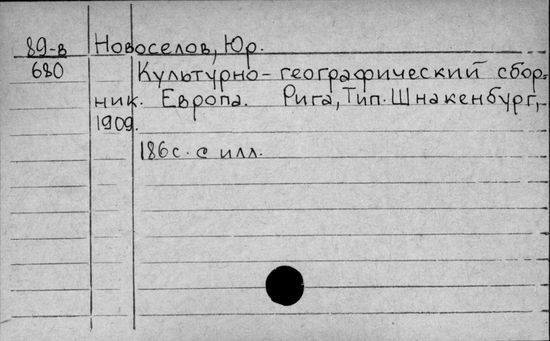 89-в Новоселов, Юр.
680 Культурно-географический сбор-
ник. Европа. Рига, Тип. Шнакенбург,
1909.
186 с. с илл.